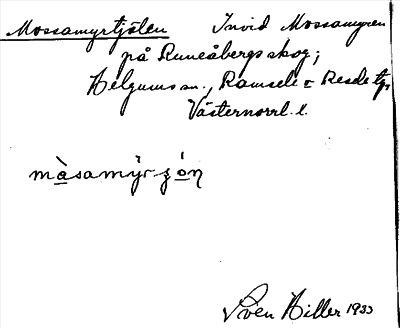 Mossamyrtjölen Invid Mossamyren
på Runeåbergs skog;
Helgums sn., Ramsele o Resele tg,
Västernorrl. l.
màsamỳr-ʒón
Sven Hiller 1933